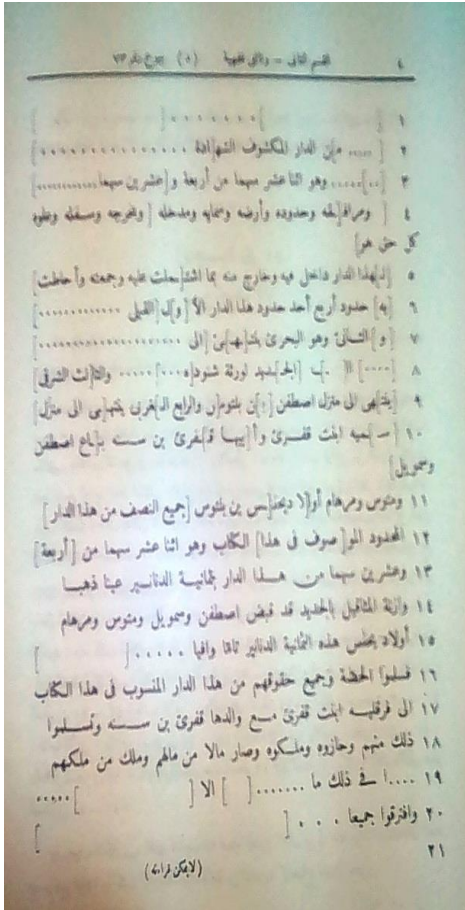 ٤ القسم الثاني — وثائق فقهية (٥) بيوع نمرة ٧٣
١ [ ] . . . . . . . [ ]
٢ [..... م]ن الدار المكشوف الشها[دة ...............
٣ [..]..... وهو اثنا عشر سهما من أربعة و[عشرين سهما............
٤ [ ومرافـ]ـقه وحدوده وأرضه وسمايه ومدخله [ومخرجه وسفله وعلوه
كل حق هو]
٥ [لـ]هذا الدار داخل فيه وخارج منه بما اشتـ[ـملت عليه وجمعته وأحاطت]
٦ [به] حدود أربع أحد حدود هذا الدار الأ[و]ل القبلى .............
٧ [و]الثانى وهو البحرى ينتـ]ـهـ[ـى الى ..................
٨ [....] الجـ]ـديد لورثة شنوده ... والثالث الشرقى
٩ [ينتـ]ـهى الى منزل اصطفن [بـ]ن بلتوس والرابع الـ[ـغربى ينتهى الى منزل]
١٠ ابنت قفرى وأ[بيها قـ]ـفرى بن باع اصطفن
وسمويل]
١١ ومنوس ومرهام أولا[د يحنـ]ـس بن بلتوس [جميع النصف من هذا الدار]
١٢ المحدود المو[صوف فى هذا] الكتاب وهو اثنا عشر سهما من [أربعة]
١٣ وعشرين سهما من هذا الدار بثمانية الدنانير عينا ذهبا
١٤ وازنة المثاقيل بالجديد قد قبض اصطفن وسمويل ومنوس ومرهام
١٥ أولاد يحنس هذه الثمانية الدنانير تاما وافيا ..... [ ]
١٦ فسلموا الحصة وجميع حقوقهم من هذا الدار المنسوب فى هذا الكتاب
١٧ الى ابنت قفرى مع والدها قفرى بن وتسلموا
١٨ ذلك منهم وحازوه وملكوه وصار مالا من مالهم وملك من ملكهم
١٩ ....ا فى ذلك ما .......[ ] الا [ ].....
٢٠ وافترقوا جميعا . . . [ ]
٢١
(لا يمكن قراءته)